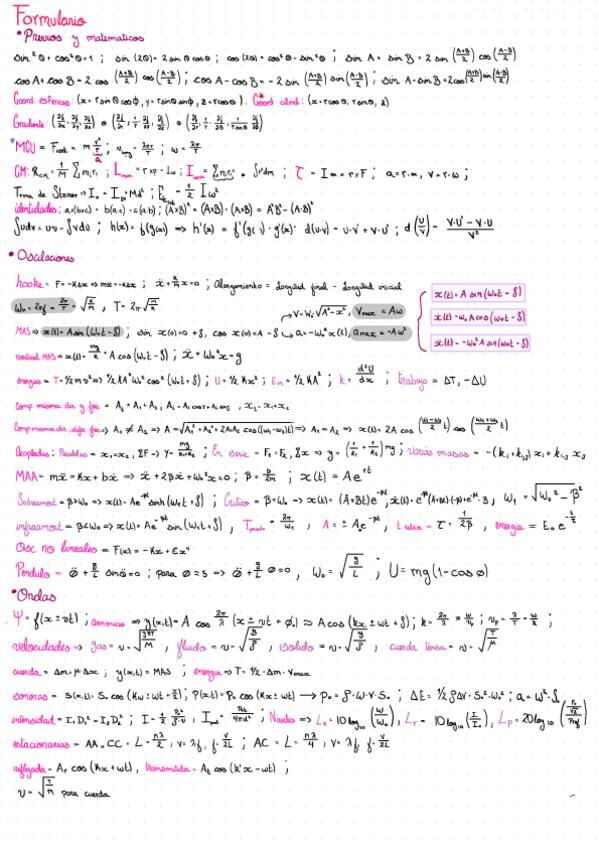 Formulario
• Previos y matematicos
sin²θ + cos²θ = 1 ; sin(2θ) = 2 sinθ cosθ ; cos(2θ) = cos²θ - sin²θ ; sin A + sin B = 2 sin (A+B/2) cos (A-B/2)
cos A + cos B = 2 cos (A+B/2) cos (A-B/2) ; cos A - cos B = -2 sin (A+B/2) sin (A-B/2) ; sin A - sin B = 2 cos (A+B/2) sin (A-B/2)
Coord. esfericas: (x = r sinθ cosφ, y = r sinθ sinφ, z = r cosθ). Coord cilind: (x = r cosθ, r sinθ, z)
Gradiente:
MCU = F = m v²/r ; = 2πr/T ; ω = 2π/T
CM: R = 1/M Σ mᵢrᵢ ; L = r x p = Iω ; I = Σ mᵢrᵢ² = ∫r²dm ; τ = Iα = r x F ; a = r·α, v = r·ω ;
Trma de Steiner ⇒ I = I + Md² ; E = 1/2 Iω²
identidades: a×(b×c) = b(a·c) - c(a·b) ; (A×B)² = (A×B)·(A×B) = A²B² - (A·B)²
∫udv = uv - ∫vdu ; h(x) = f(g(x)) ⇒ h'(x) = f'(g(x))·g'(x) d(u·v) = u·v' + v·u' ; d(U/V) = V·U' - V'·U / V²
• Oscilaciones
hooke = F = -kΔx ⇒ mẍ = -kΔx ; ẍ + k/m x = 0 ; Alargamiento = Longitud final - Longitud inicial
ω₀ = 2πf = 2π/T = √k/m , T = 2π √m/k
v = ω₀ √A² - x² , Vmax = Aω
MAS ⇒ x(t) = A sin(ω₀t - δ) ; sin x(0) = 0 + δ, cos x(0) = A - δ a = -ω₀² x(t), amax = -Aω²
x(t) = A sin(ω₀t - δ)
ẋ(t) = ω₀ A cos(ω₀t - δ)
ẍ(t) = -ω₀² A sin(ω₀t - δ)
vertical MAS ⇒ x(t) = mg/k + A cos(ω₀t - δ) ; ẍ + ω₀²x = g
energias = T = 1/2 mv² ⇒ 1/2 KA² ω₀² cos²(ω₀t + δ) ; U = 1/2 Kx² ; Em = 1/2 KA² ; k = d²U/dx ; trabajo = ΔT, -ΔU
Comp misma dir y frec = A₁ = A₁ + A₂ ,
Comp misma dir ≠ frec ⇒ A₁ ≠ A₂ ⇒ A = √A₁² + A₂² + 2A₁A₂ cos((ω₁-ω₂)t) ⇒ A₁ = A₂ ⇒ x(t) = 2A cos (ω₁-ω₂/2 t) cos (ω₁+ω₂/2 t)
Acopladas: Paralelas = x₁ = x₂, ΣF ⇒ y = mg/k₁+k₂ ; En serie = F₁ = F₂, Σx ⇒ y = (1/k₁ + 1/k₂) mg ; varias masas =
MAA = mẍ = Kx + bẋ ⇒ ẍ + 2βẋ + ω₀²x = 0 ; β = b/2m ; x(t) = A e^rt
Subreamort = β > ω₀ ⇒ x(t) = Ae^-βt sinh(ω₁t + δ) ; Critico = β = ω₀ ⇒ x(t) = (A+Bt)e^-βt, ẋ(t) = e^-βt (A+Bt)(-β) + e^-βt · B , ω₁ = √ω₀² - β²
infraamort = β < ω₀ ⇒ x(t) = Ae^-βt sin(ω₁t + δ) , T = 2π/ω₁ , A = ± A₀e^-βt , t relax = τ = 1/2β , energia = E₀ e^-t/τ
Osc no lineales = F(x) = -Kx + Ɛx⁴
Pendulo = φ̈ + g/L sinφ = 0 ; para φ ≈ 5 ⇒ φ̈ + g/L φ = 0 , ω₀ = √g/L ; U = mg(1 - cosφ)
• Ondas
Ψ = f(x ± vt) ; armonicos ⇒ y(x,t) = A cos 2π/λ (x ± vt + φ₀) ≈ A cos(kx ± ωt + δ) ; k = 2π/λ = ω/v , vp = λ/T = ω/k ;
velocidades ⇒ gas = v = √γRT/M , fluido = v = √B/ρ , solido = v = √Y/ρ , cuerda tensa = v = √T/μ
cuerda = Δm = μΔx ; y(x,t) = MAS ; energia ⇒ T = 1/2 · Δm · vmax
sonoras = S(x,t) = S₀ cos(kx ± ωt = π/2) ; P(x,t) = P₀ cos(kx ± ωt) → p₀ = ρ·ω·v·S₀ ; ΔE = 1/2 ρΔV · S₀² · ω₀² ; a = ω²·S₀
intensidad = I₁D₁² = I₂D₂² ; I = 1/2 P₀²/ρ·v , I = Pot/4πd² ; Niveles ⇒ L = 10 log₁₀ (W/W₀) , L = 10 log₁₀ (I/I₀) , L = 20 log₁₀
estacionarias = AA = CC = L = nλ/2 , v = λf, f = v/2L ; AC = L = nλ/4 , v = λf, f = v/2L
reflejada = Ar cos(Kx + ωt), transmitida = At cos(k'x - ωt) ;
v = √T/m para cuerda